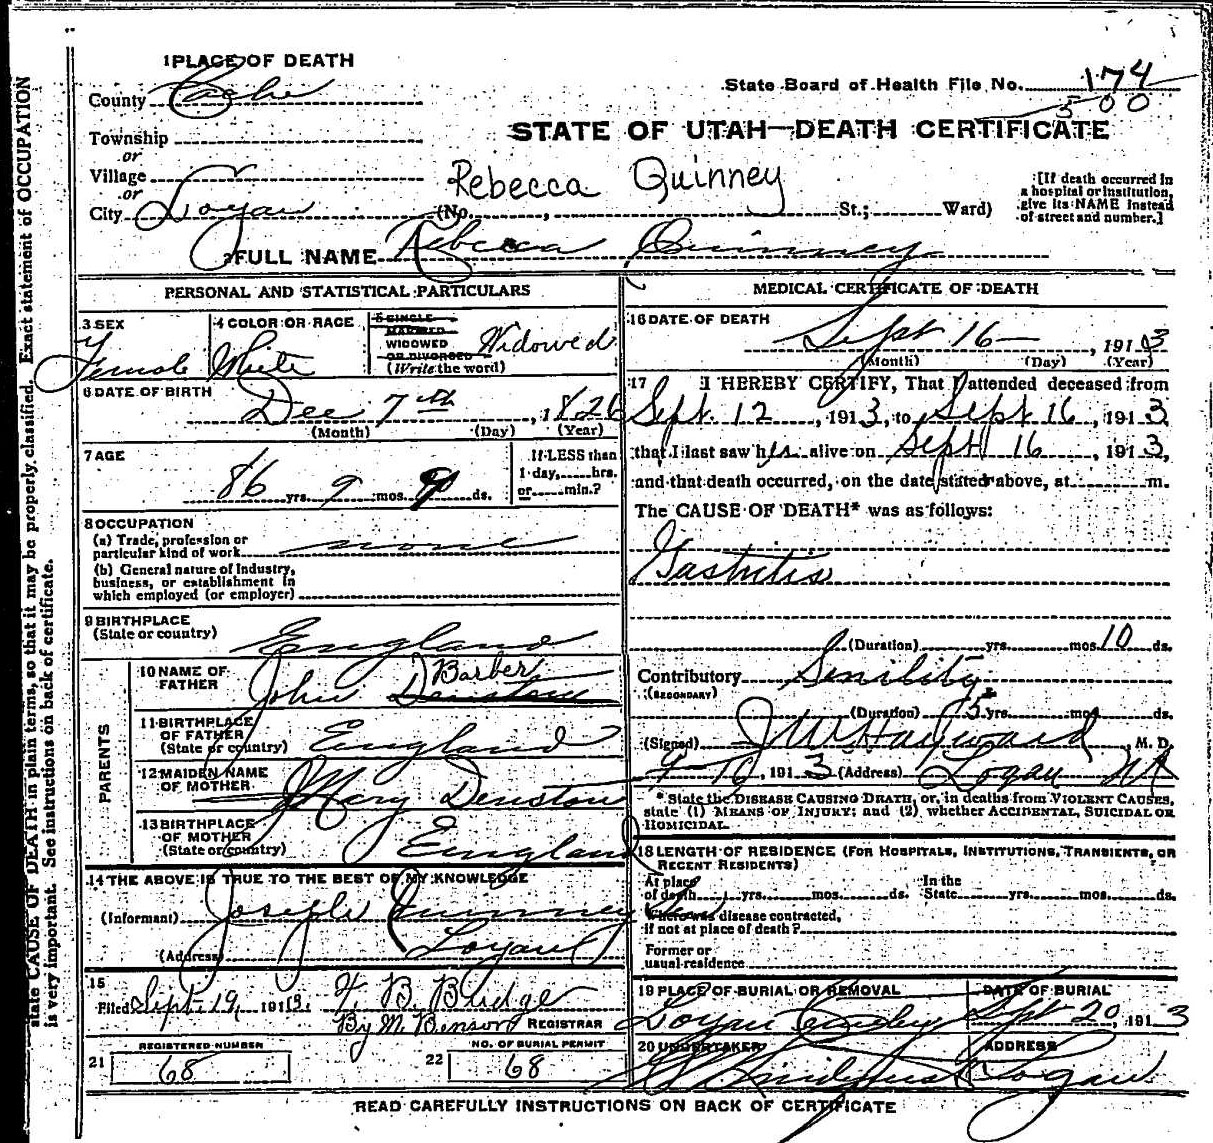 1 PLACE OF DEATH
County Cache
State Board of Health File No. 174
500
Township
or
Village
or
City Logan
STATE OF UTAH—DEATH CERTIFICATE
Rebecca Quinney
(No. , St.; Ward)
[If death occurred in
a hospital or institution,
give its NAME instead
of street and number.]
2 FULL NAME Rebecca Quinney
PERSONAL AND STATISTICAL PARTICULARS
3 SEX
Female
4 COLOR OR RACE
White
5 SINGLE
MARRIED
WIDOWED
OR DIVORCED
(Write the word)
Widowed
6 DATE OF BIRTH
Dec 7th, 1826
(Month) (Day) (Year)
7 AGE
86 yrs. 9 mos. 9 ds.
If LESS than
1 day, hrs.
or min.?
8 OCCUPATION
(a) Trade, profession or
particular kind of work none
(b) General nature of industry,
business, or establishment in
which employed (or employer)
9 BIRTHPLACE
(State or country) England
PARENTS
10 NAME OF
FATHER John Denston Barber
11 BIRTHPLACE
OF FATHER
(State or country) England
12 MAIDEN NAME
OF MOTHER Mary Denston
13 BIRTHPLACE
OF MOTHER
(State or country) England
14 THE ABOVE IS TRUE TO THE BEST OF MY KNOWLEDGE
(Informant) Joseph Quinney
(Address) Logan
15
Filed Sept. 19, 1913. F. B. Budge
By M. Benson REGISTRAR
21 REGISTERED NUMBER
68
22 NO. OF BURIAL PERMIT
68
MEDICAL CERTIFICATE OF DEATH
16 DATE OF DEATH
Sept 16—, 1913
(Month) (Day) (Year)
17 I HEREBY CERTIFY, That I attended deceased from
Sept. 12, 1913, to Sept 16, 1913
that I last saw h alive on Sept 16, 1913,
and that death occurred, on the date stated above, at m.
The CAUSE OF DEATH* was as follows:
Gastritis
(Duration) yrs. mos. 10 ds.
Contributory Senility
(SECONDARY)
(Duration) 5 yrs. mos. ds.
(Signed) J W Hayward, M. D.
9-16, 1913 (Address) Logan
* State the DISEASE CAUSING DEATH, or, in deaths from VIOLENT CAUSES,
state (1) MEANS OF INJURY; and (2) whether ACCIDENTAL, SUICIDAL OR
HOMICIDAL.
18 LENGTH OF RESIDENCE (FOR HOSPITALS, INSTITUTIONS, TRANSIENTS, OR
RECENT RESIDENTS)
At place
of death yrs. mos. ds.
In the
State yrs. mos. ds.
Where was disease contracted,
If not at place of death?
Former or
usual residence
19 PLACE OF BURIAL OR REMOVAL
Logan
DATE OF BURIAL
Sept 20, 1913
20 UNDERTAKER
ADDRESS
Logan
READ CAREFULLY INSTRUCTIONS ON BACK OF CERTIFICATE
state CAUSE OF DEATH in plain terms, so that it may be properly classified. Exact statement of OCCUPATION
is very important. See instructions on back of certificate.